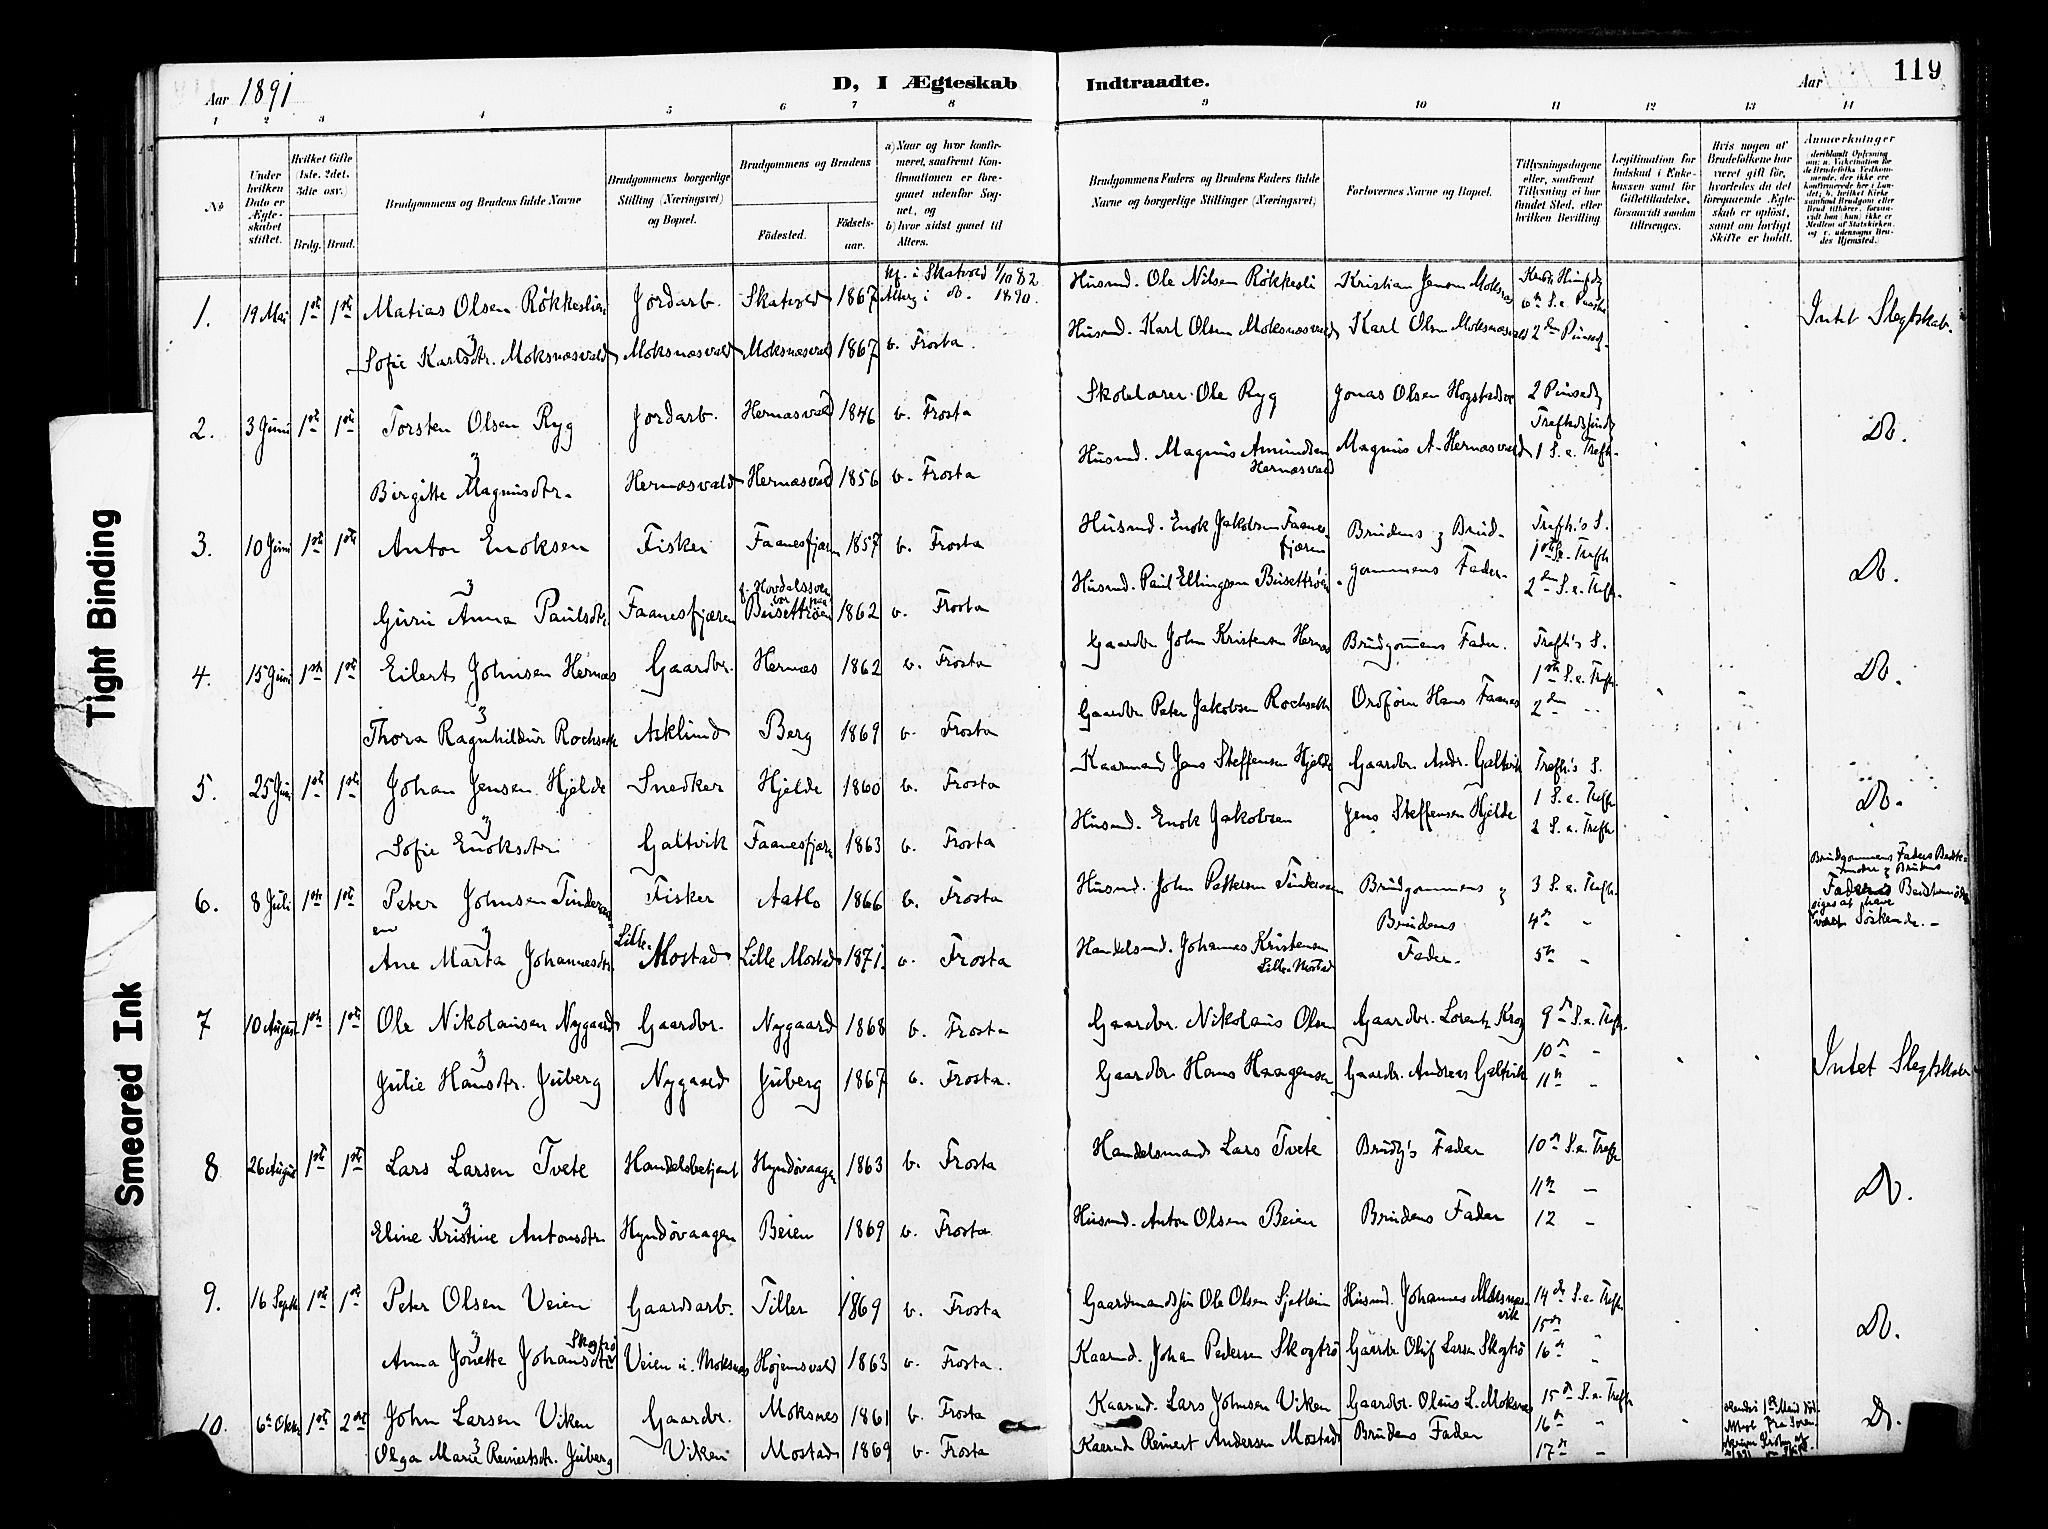 Aar 1891
D, I Ægteskab Indtraadte.
Aar
119
1 2 3 4 5 6 7 8 9 10 11 12 13 14
No
Under hvilken Dato er Ægteskabet stiftet.
Hvilket Gifte (1ste. 2det. 3die osv.)
Brdg. Brud.
Brudgommens og Brudens fulde Navne
Brudgommens borgerlige Stilling (Næringsvei) og Bopæl.
Brudgommens og Brudens
Födested. Födselsaar.
a) Naar og hvor konfirmeret, saafremt Konfirmationen er foregaaet udenfor Sognet, og
b) hvor sidst gaaet til Alters.
Brudgommens Faders og Brudens Faders fulde Navne og borgerlige Stillinger (Næringsvei)
Forlovernes Navne og Bopæl.
Tillysningsdagene eller, saafremt Tillysning ei har fundet Sted, efter hvilken Bevilling
Legitimation for Indskud i Enkekassen samt for Giftetilladelse, forsaavidt saadan tiltrænges.
Hvis nogen af Brudefolkene har været gift før, hvorledes da det foregaaende Ægteskab er opløst, samt om lovligt Skifte er holdt.
Anmærkninger
1. 19 Mai 1ste 1ste Matias Olsen Rökkeslien Jordarb. Skatvold 1867 kf. i Skatvold 1/10 82 Alterg. i do. 1890. Husmd. Ole Nilsen Rökkesli Kristian Jensen Moksnes Intet Slegtskab.
Sofie Karlsdtr. Moksnæsvald Moksnæsvald Moksnæsvald 1867 b. Frosta. Husmd. Karl Olsen Moksnæsvald Karl Olsen Moksnæsvald 2den Pinsed.
2. 3 Juni 1ste 1ste Torsten Olsen Ryg Jordarb. Hernæsvald 1846 b. Frosta Skolelærer Ole Ryg Jonas Olsen Hogstad 2 Pinsedg Do.
Birgitte Magnusdtr. Hernæsvald Hernæsvald 1856 b. Frosta Husmd. Magnus Amundsen Hernæsvald Magnus A. Hernæsvald 1 S. e. Trefh.
3. 10 Juni 1ste 1ste Anton Enoksen Fisker Faanesfjæren 1857 b. Frosta Husmd. Enok Jakobsen Faanesfjæren Brudens og Brudgommens Fader. Trefh.'s S. 1ste S. e. Trefh. Do.
Guru Anna Paulsdtr Faanesfjæren Busettröen 1862 b. Frosta Husmd. Paul Ellingsen Busettröen 2den S. e. Trefh.
4. 15 Juni 1ste 1ste Eilert Johnsen Hernæs Gaardbr. Hernæs 1862 b. Frosta Gaardbr John Kristensen Hernæs Brudgommens Fader. Trefh's S. 1ste S. e. Trefh. Do.
Thora Ragnhildur Rochseth Asklund Berg 1869 b. Frosta Gaardbr Peter Jakobsen Rochseth Ordförer Hans Faanes 2den
5. 25 Juni 1ste 1ste Johan Jensen Hjelde Snedker Hjelde 1860 b. Frosta Kaarmand Jens Steffensen Hjelde Gaardbr. Andr. Galtvik Trefh's S. 1 S. e. Trefh Do.
Sofie Enoksdtr Galtvik Faanesfjære 1863 b. Frosta Husmd. Enok Jakobsen Jens Steffensen Hjelde 2 S. e. Trefh
6. 8 Juli 1ste 1ste Peter Johnsen Tinderaaen Fisker Aatlo 1866 b. Frosta Husmd. John Pettersen Tinderaaen Brudgommens og Brudens Fader. 3 S. e. Trefh. 4de - 5te - Brudgommens Faders Bedstemoder og Brudens Faders Bedstemoder siges at have været Söskende.
Ane Marta Johannesdtr. Lille-Mostad Lille Mostad 1871. b. Frosta Handelsmd. Johannes Kristensen Lille-Mostad
7 10 August 1ste 1ste Ole Nikolausen Nygaard Gaardbr. Nygaard 1868 b. Frosta Gaardbr. Nikolaus Olsen Gaardbr. Lorentz Krog 9de S. e. Trefh. Intet Slegtskab
Julie Hansdtr. Juberg Nygaard Juberg 1867 b. Frosta. Gaardbr Hans Haagensen Gaardbr. Andreas Galtvik 10de - 11te -
8 26 August 1ste 1ste Lars Larsen Tvete Handelsbetjent Hyndövaagen 1863 b. Frosta Handelsmand Lars Tvete Brudg's Fader 10de S. e. Trefh 11te - Do.
Eline Kristine Antonsdtr. Hyndövaagen Beien 1869 b. Frosta Husmd. Anton Olsen Beien Brudens Fader 12 -
9. 16 Septb 1ste 1ste Peter Olsen Veien Gaardsarb. Tiller 1869 b. Frosta Gaardmandssön Ole Olsen Sjetlein Husmd. Johannes Moksnesvik 14de S. e. Trefh 15de Do.
Anna Jonette Johansdtr Skogtrö Veien u. Moksnes Höjemsvald 1863 b. Frosta. Kaarmd. Johan Pedersen Skogtrö Gaardbr Oluf Larsen Skogtrö 16de
10. 6te Oktbr 1ste 2det John Larsen Viken Gaardbr. Moksnes 1861 b. Frosta Kaarmd. Lars Johnsen Viken Gaardbr. Olaus L. Moksnes 15de S. e. Trefh 16de Do.
Olga Marie Reinertsdtr. Juberg Viken Mostad 1869 b. Frosta Kaarmd Reinert Andersen Mostad Brudens Fader 17de -
Tight Binding
Smeared Ink